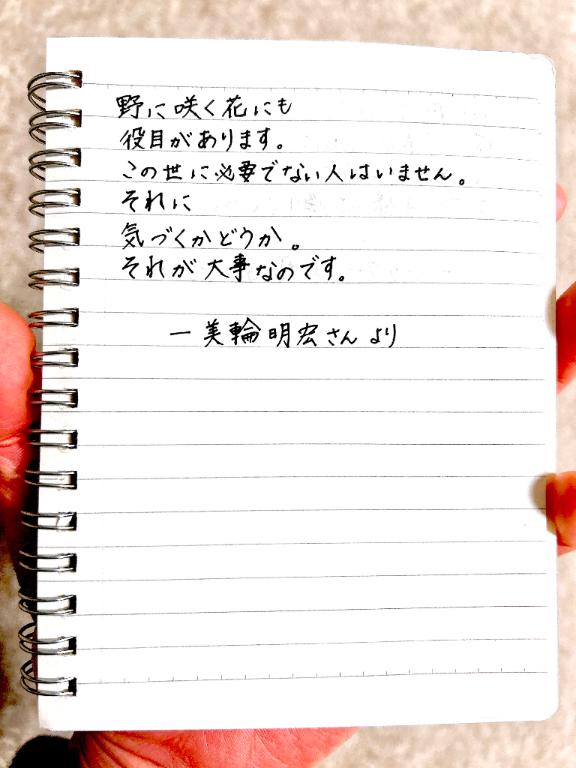 野に咲く花にも
役目があります。
この世に必要でない人はいません。
それに
気づくかどうか。
それが大事なのです。
ー美輪明宏さんより